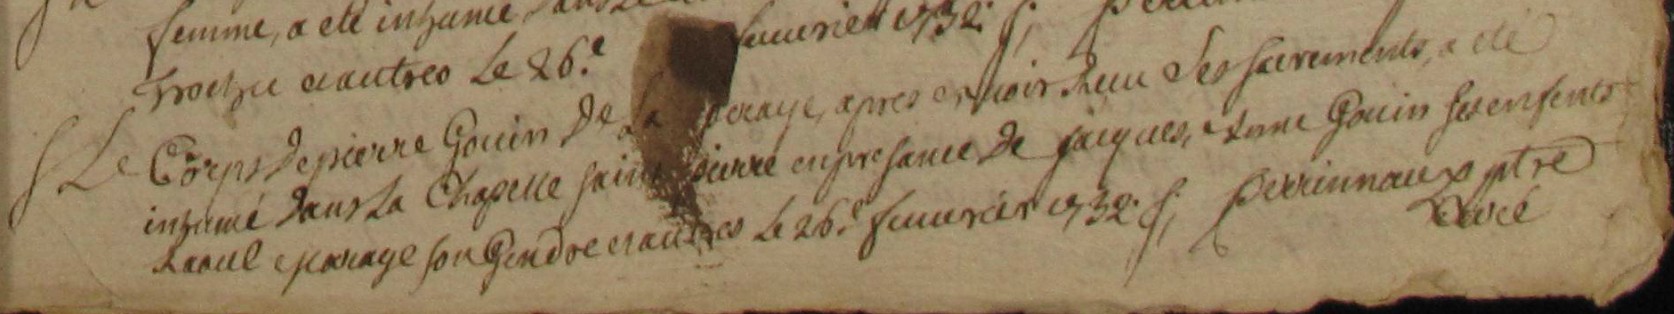 femme, a eté inhumé dans
trochu et autres Le 26.e feuvrier 1732. f.
f Le Corps de pierre Gouin de la peraye, apres avoir Receu Ses sacrements, a eté
inhumé dans La Chapelle saint pierre en presance de jacques, et anne Gouin ses enfents
Raoul eparage son Gendre et autres Le 26.e feuvrier 1732. f. perrinnaux ptre
Curé